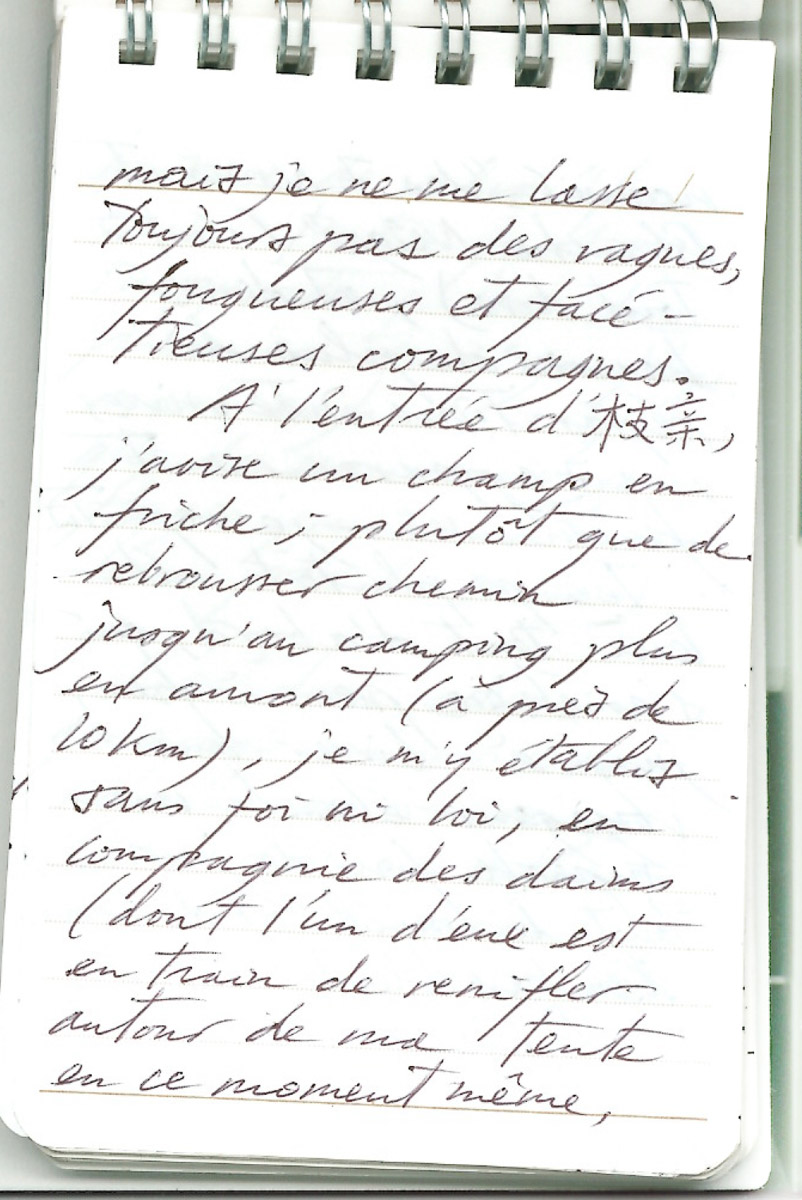 mais je ne me lasse
toujours pas des vagues,
fougueuses et facé-
tieuses compagnes.
A l'entrée d'枝亲,
j'avise un champ en
friche ; plutôt que de
rebrousser chemin
jusqu'au camping plus
en amont (à près de
20 km), je m'y établis
sans foi ni loi, en
compagnie des daims
(dont l'un d'eux est
en train de renifler
autour de ma tente
en ce moment même,